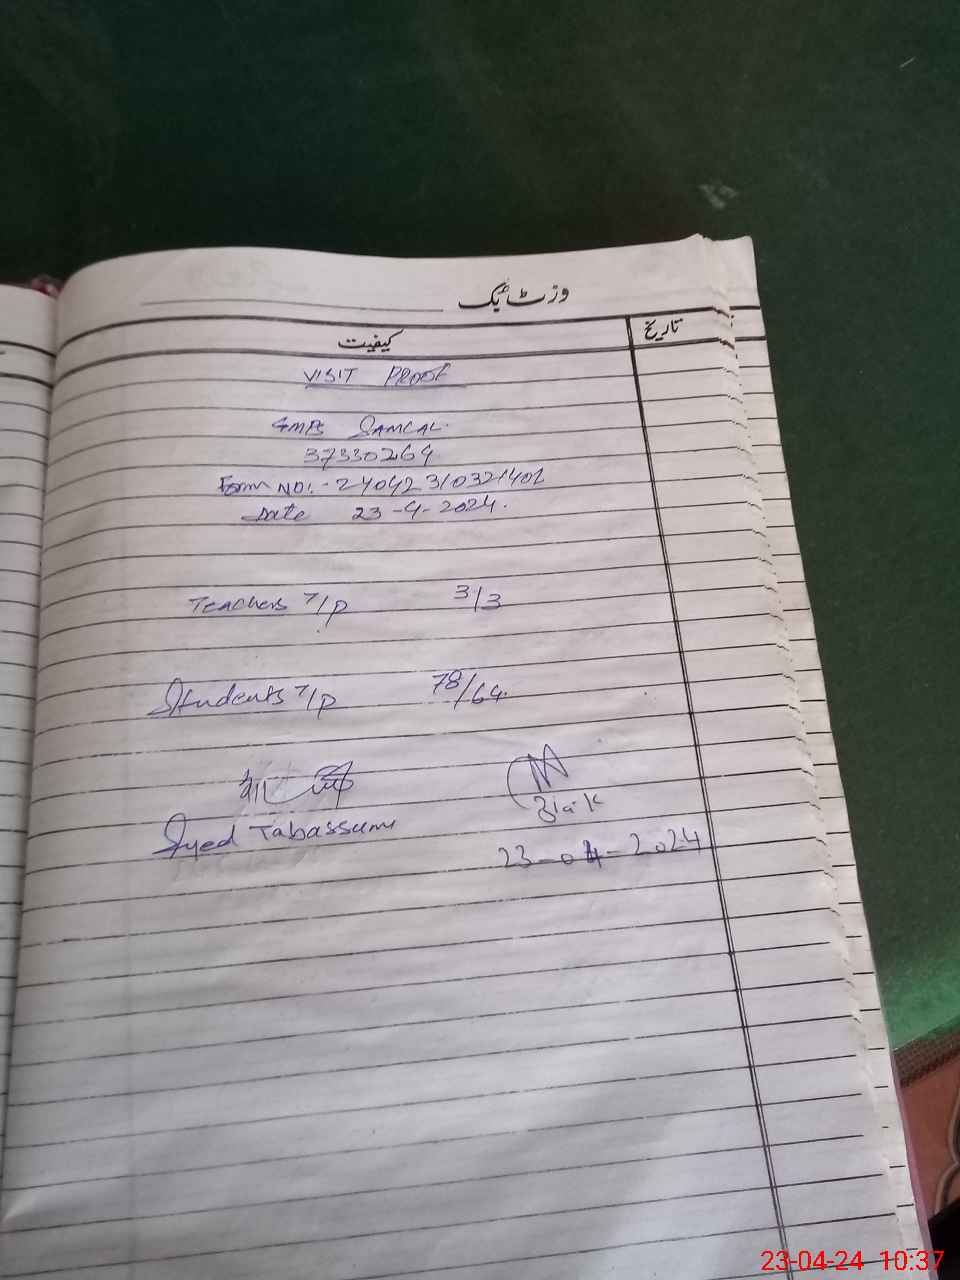 وزٹ بک
کیفیت
تاریخ
VISIT PROOF
GMPS SAMCAL.
37330264
Form NO:- 2404231032140
Date 23-4-2024.
Teachers T/P 3/3
Students T/P 78/64.
Syed Tabassum
23-04-2024
23-04-24 10:37